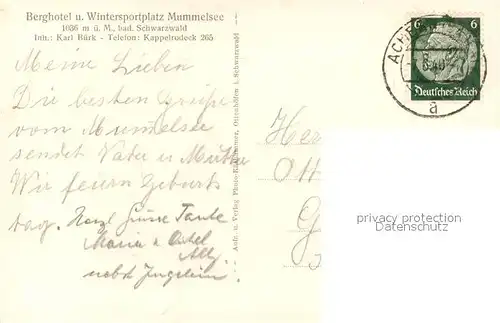 Berghotel u. Wintersportplatz Mummelsee
1036 m ü. M., bad. Schwarzwald
Inh.: Karl Bürk - Telefon: Kappelrodeck 265
Meine Lieben
Die besten Grüße
vom Mummelsee
sendet Vater u Mutter
Wir feiern Geburts
tag. Herzl Grüsse Tante
Maria u Onkel
nebst
Aufn. u. Verlag Photo- Ottenhöfen i. Schwarzwald
6 6
Deutsches Reich
ACHE
a
Her
Ott
G
privacy protection
watermark